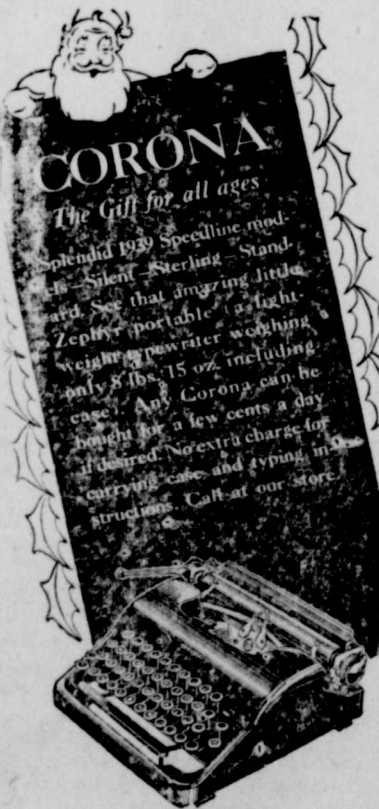 CORONA
The Gift for all ages
Splendid 1939 Speedline mod-
els – Silent – Sterling – Stand-
ard. See that amazing little
Zephyr portable (a light-
weight typewriter weighing
only 8 lbs. 15 oz. including
case). Any Corona can be
bought for a few cents a day
if desired. No extra charge for
carrying case and typing in-
structions. Call at our store.